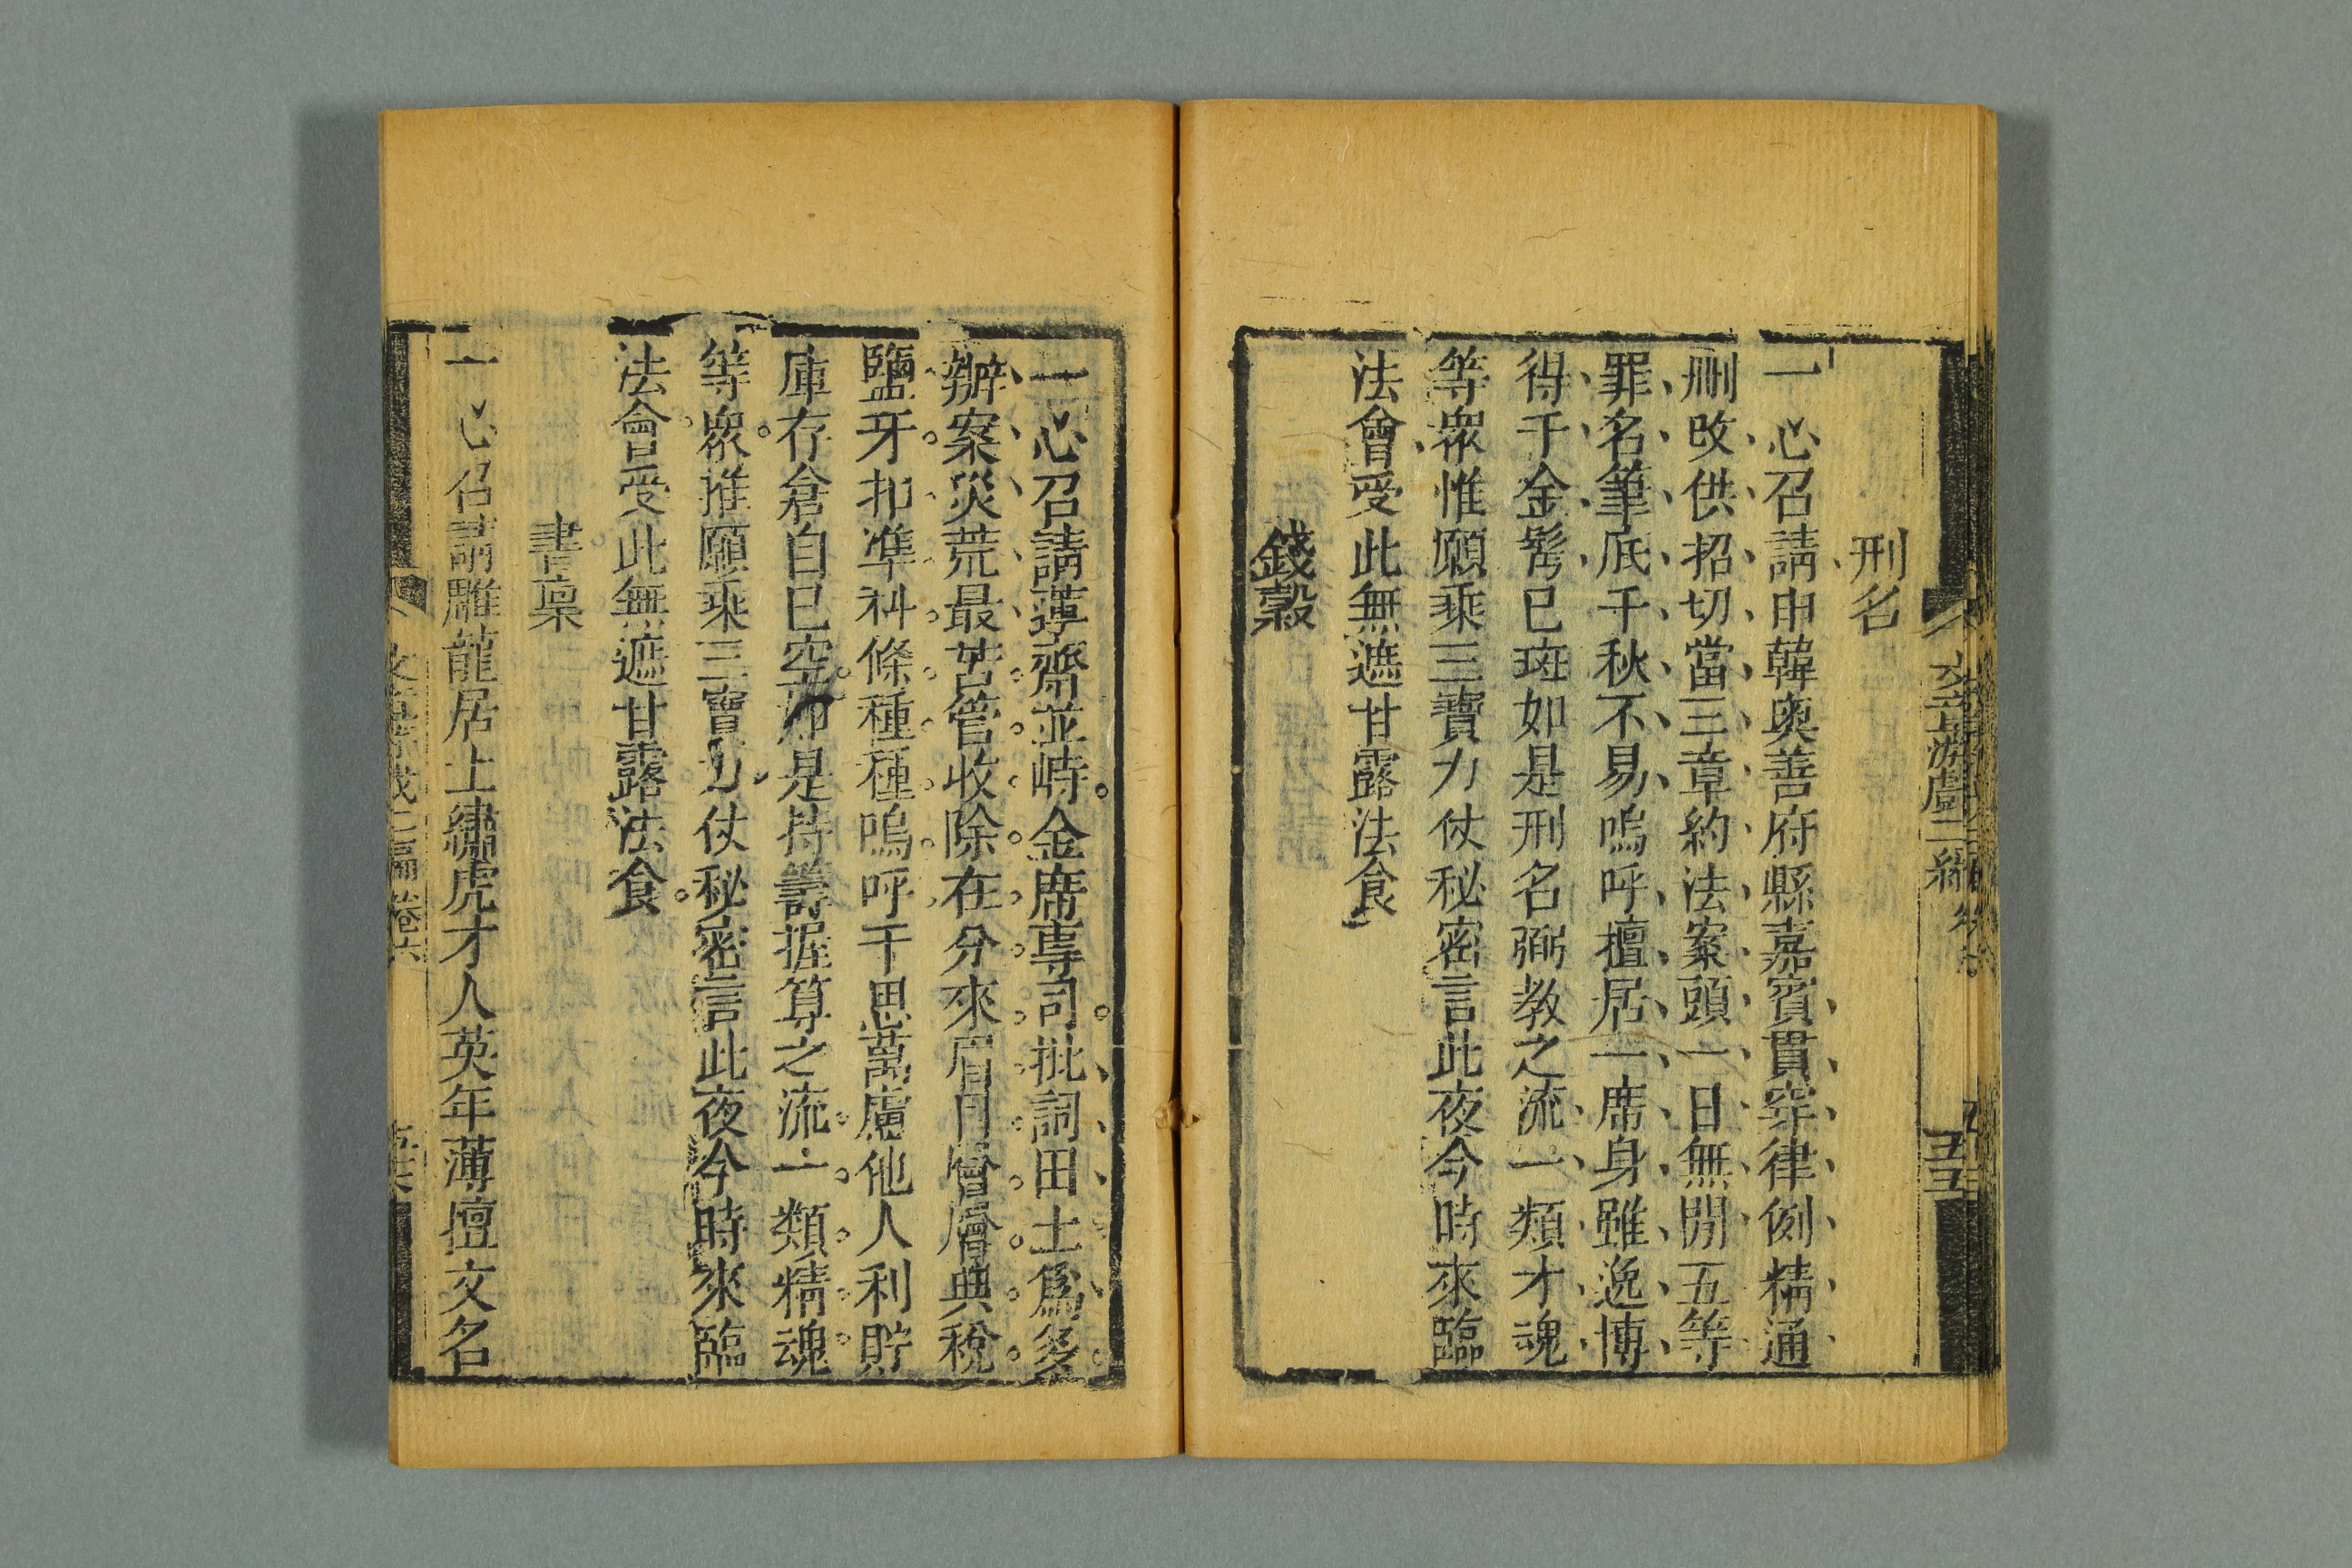 刑名
一心召請申韓奧善府縣嘉賓貫穿律例精通
刪改供招切當三章約法案頭一日無閒五等
罪名筆底千秋不易嗚呼擅居一席身雖逸博
得千金鬢已斑如是刑名弼教之流一類才魂
等眾惟願乘三寶力仗秘密言此夜今時來臨
法會受此無遮甘露法食
錢穀
一心召請蓮齋並峙金席専司批詞田土爲多
辦案災荒最苦管收除在分來眉目噲噲典稅
鹽牙扣準科條種種嗚呼千思萬慮他人利貯
庫存倉自已空如是持籌握算之流一類精魂
等眾惟願乘三寶力仗秘密言此夜今時來臨
法會受此無遮甘露法食
書稟
一心召請雕龍居上繡虎才人英年薄擅文名
文章游戲二編 卷六